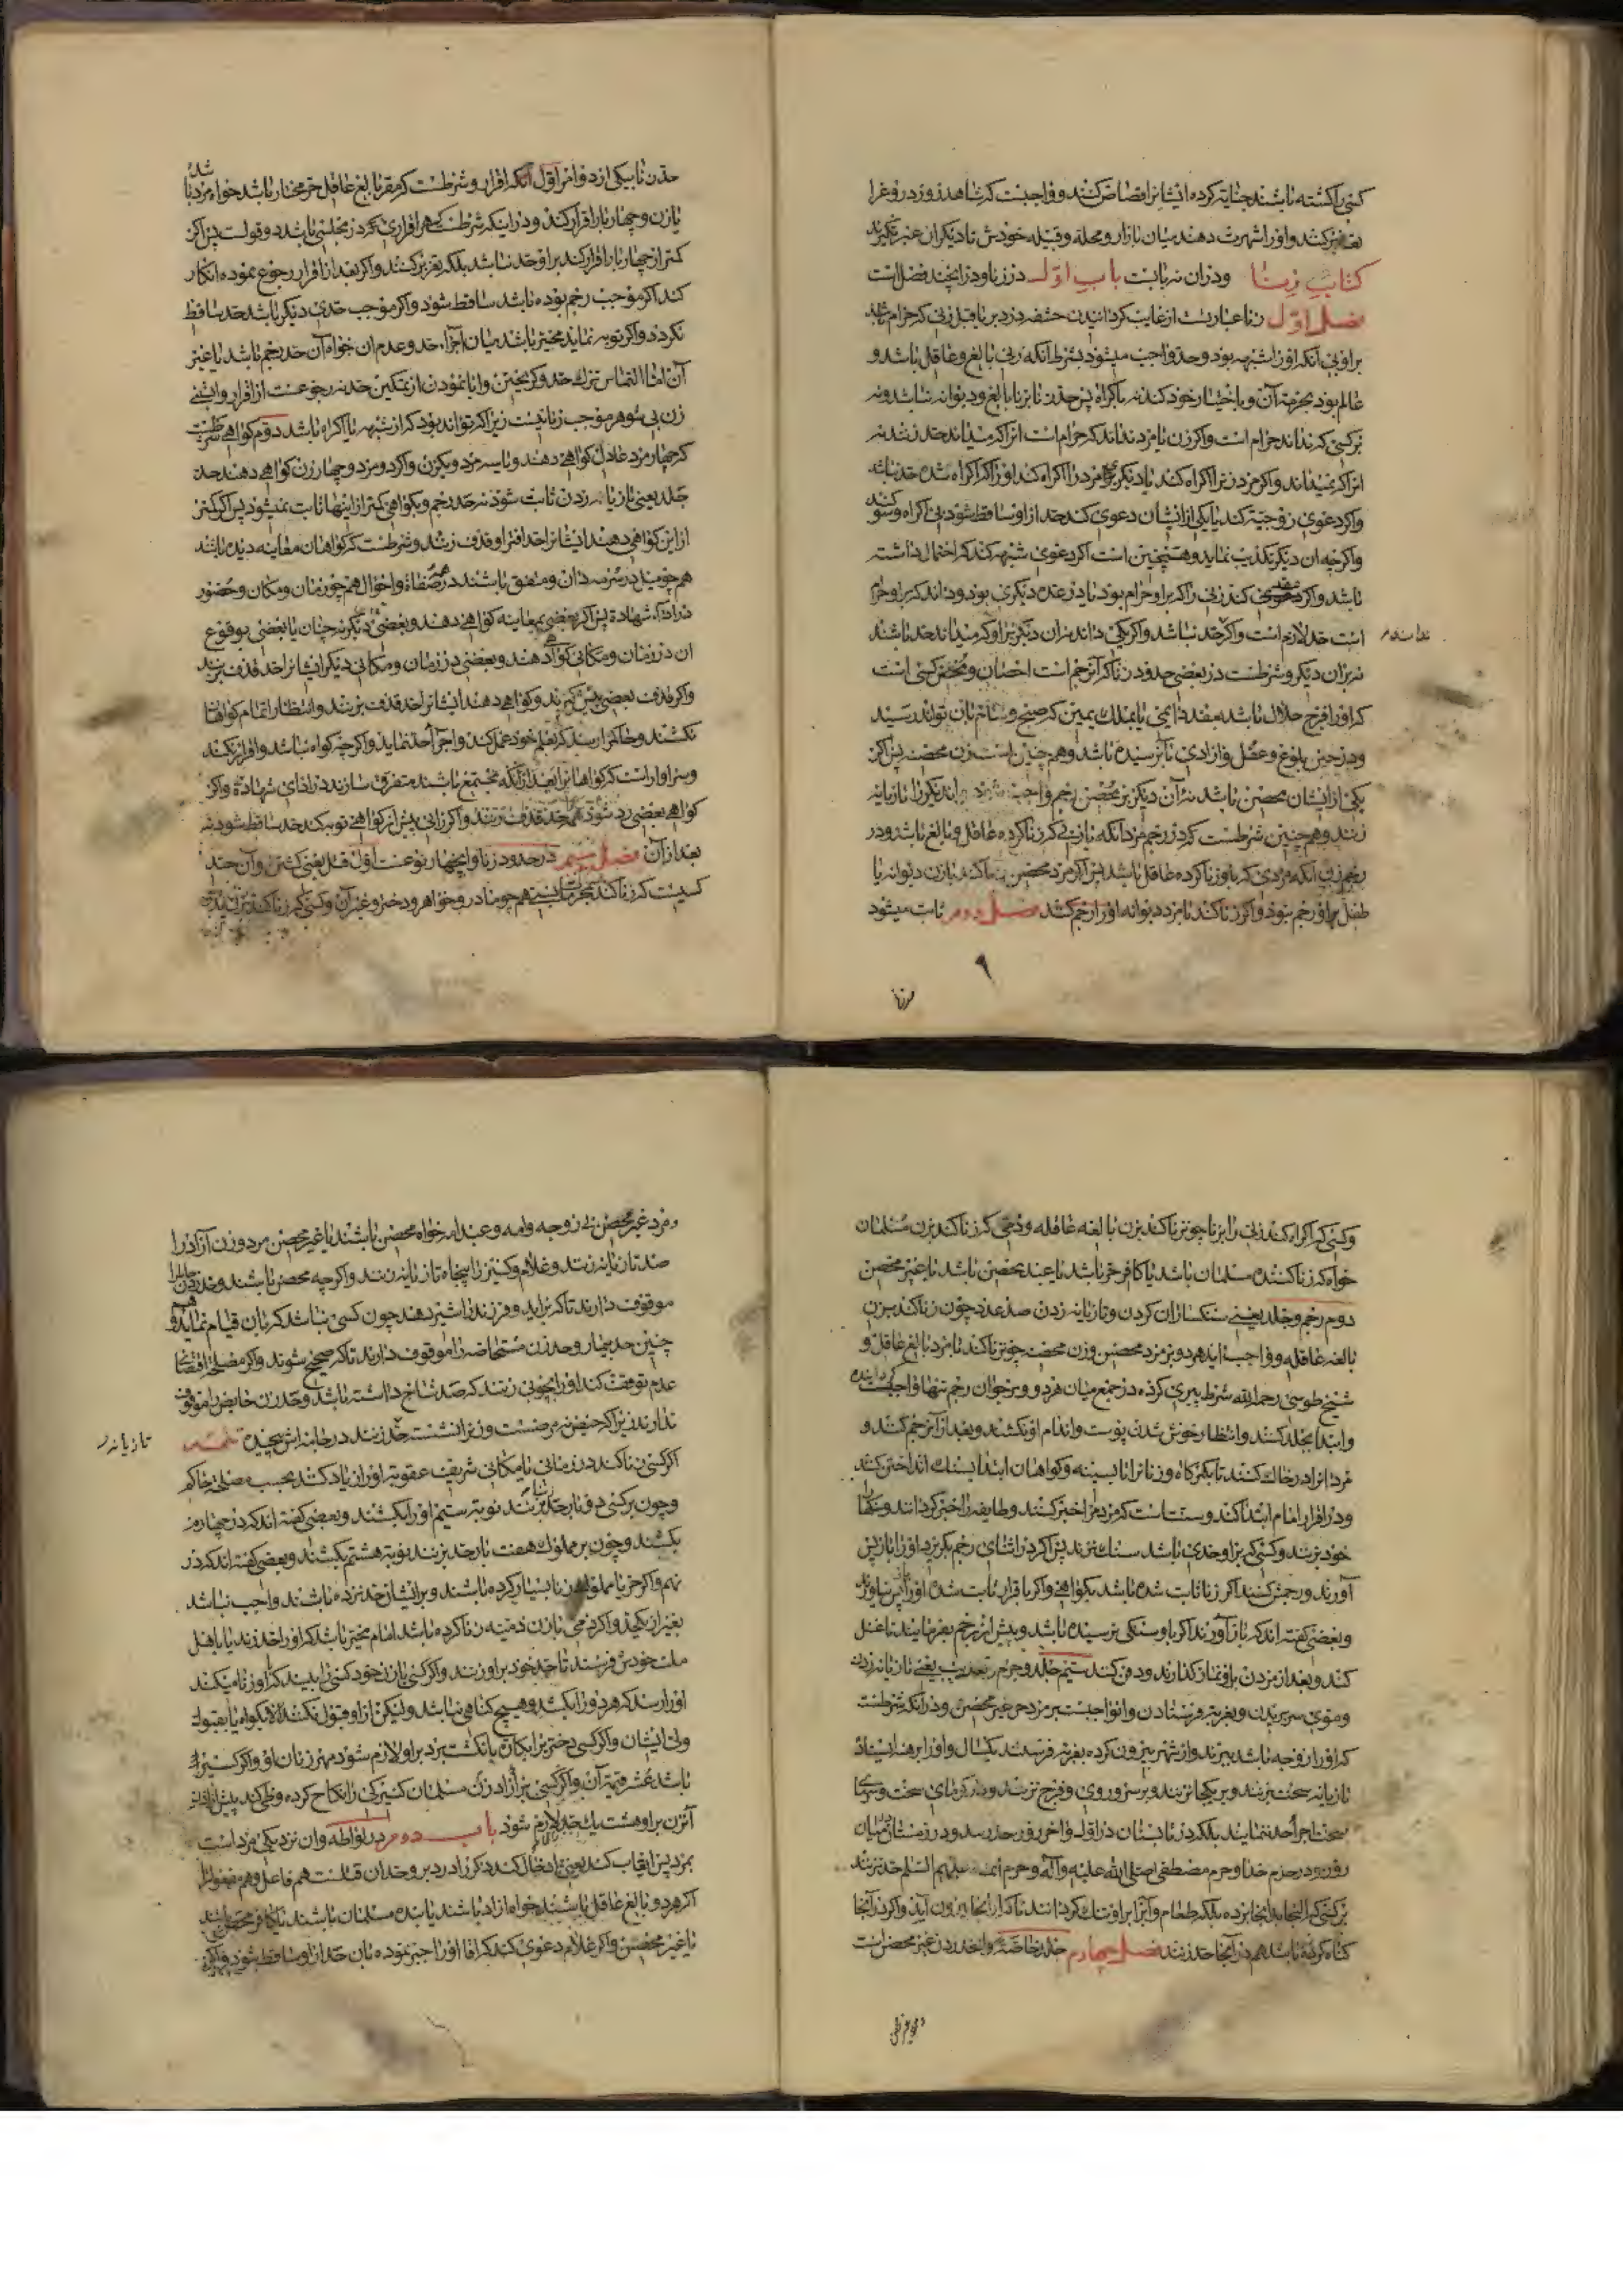 کسی را کشته باشند جنایة کرده ایشانرا قصاص کنند و واجبست که شاهد زور دروغ را
تعزیر کنند و او را شهرت دهند میان بازار و محله و قبیله خودش تا دیگران عبرة گیرند
کتاب زنا ودران سه بابست باب اول در زنا ودر اینچند فصل است
فصل اول زنا عبارتست از غایب کردانیدن حشفه در دبر یا قبل زنی که حرام باشد
براو بی آنکه او را شبهه بود وحد واجب میشود بشرط آنکه زنی بالغ وعاقل باشد و
عالم بود بحرمة آن وباختیار خود کند نه باکراه پس حد نزنند بر نابالغ ودیوانه نباشد ونه
بر کسی که نداند حرام است واکر زن یا مرد نداند که حرام است انرا که میداند حد زنند نه
انرا که نمیداند واکر مرد زنرا اکراه کند یا دیکر مرد را اکراه کند او را که اکراه شده حد نباشد
واکر دعوی زوجیة کند یا یکی از ایشان دعوی کند حد از او ساقط شود بی اکراه وسوکند
واکرچه ان دیکر تکذیب نماید وهمچنین است اکر دعوی شبهه کند که احتمال داشته
باشد واکر عقد کند زنی را که براو حرام بود یا در عده دیکری بود وداند که براو حرام
است حد لازم است واکر نه حد نباشد واکر یکی داند نه ان دیکر براو که میداند حد باشد
نه بران دیکر وشرطست در بعضی حدود زنا که آن رجم است احصان ومحصن کسی است
که او را فرج حلال باشد بعقد دایمی یا بملک یمین که صبح وشام بان تواند رسید
ودر حین بلوغ وعقل وازادی بآن رسیده باشد وهم چنین است زن محصنه پس اکر
یکی از ایشان محصن باشد نه آن دیکر بر محصن رجم واجب شود واندیکر را تازیانه
زنند وهم چنین شرطست که در رجم مرد آنکه با زنی که زنا کرده عاقل وبالغ باشد ودر
رجم زن آنکه مردی که با او زنا کرده عاقل باشد پس اکر مرد محصن زنا کند با زن دیوانه یا
طفل براو رجم نبود واکر زنا کند با مرد دیوانه او را رجم کنند فصل دوم ثابت میشود
۹
حدزنا
حد زنا بیکی از دو امر اول آنکه اقرار وشرطست که مقر بالغ عاقل حر مختار باشد خواه مرد باشد
یا زن وچهار بار اقرار کند ودر اینکه شرطست که هر اقراری در مجلسی باشد دو قولست پس اکر
کمتر از چهار بار اقرار کند براو حد نباشد بلکه تعزیر کنند واکر بعد از اقرار رجوع نموده انکار
کند اکر موجب رجم بوده باشد ساقط شود واکر موجب حدی دیکر باشد حد ساقط
نکردد واکر توبه نماید مخیر باشد میان اجرا حد وعدم ان خواه آن حد رجم باشد یا غیر
آن اما التماس ترک حد وکریختن وابا نمودن از تمکین حد نه رجوعست از اقرار وابستنی
زن بی شوهر موجب زنا نیست زیرا که تواند بود که از شبهه یا اکراه باشد دوم کواهی شرطست
که چهار مرد عادل کواهی دهند ویا سه مرد ویکزن واکر دو مرد وچهار زن کواهی دهند حد
جلد یعنی تازیانه زدن ثابت شود نه حد رجم وبکواهی کمتر از اینها ثابت نمیشود پس اکر کمتر
از این کواهی دهند ایشانرا حد افترا وقذف زنند وشرطست که کواهان معاینه دیده باشند
هم چو میل در سرمه دان ومتفق باشند در همه صفات واحوال هم چو زمان ومکان وحضور
در اداء شهادة پس اکر بعضی بمعاینه کواهی دهند وبعضی دیکر نه چنان یا بعضی بوقوع
ان در زمان ومکانی کواهی دهند وبعضی در زمان ومکانی دیکر ایشانرا حد قذف بزنند
واکر بعضی پیش کیرند وکواهی دهند ایشانرا حد قذف بزنند وانتظار اتمام کواهان
نکشند وحاکم را رسد که بعلم خود عمل کند واجرا حد نماید واکرچه کواه نباشد واقرار نکند
وسزاوار است که کواهانرا بعد از آنکه مجتمع باشند متفرق سازند در ادای شهادة واکر
کواهی بعضی رد شود همه حد قذف بزنند واکر زانی پیش از کواهی توبه کند حد ساقط شود نه
بعد از آن فصل سیم در حدود زنا واینچهار نوعست اول قتل یعنی کشتن وآن حد
کسیست که زنا کند بمحرمات نسبی هم چو مادر وخواهر ودختر وغیر آن وکسی که زنا کند بزن پدر
وکسی که اکراه کند زنی را بزنا چون زنا کند بزن بالغه عاقله وذمی که زنا کند بزن مسلمان
خواه که زنا کننده مسلمان باشد یا کافر حر باشد یا عبد محصن باشد یا غیر محصن
دوم رجم وجلد یعنی سنکساران کردن وتازیانه زدن صد عدد چون زنا کند بزن
بالغه عاقله وواجب اید هر دو بر مرد محصن وزن محصنه چون زنا کند با مرد بالغ عاقل و
شیخ طوسی رحمه الله شرط پیری کرده در جمع میان هر دو وبر جوان رجم تنها واجب کردانیده
وابتدا بجلد کنند وانتظار خوش شدن پوست واندام او نکشند وبعد از آن رجم کنند و
مرد را در خاک کنند تا بکمرکاه وزنانرا تا بسینه وکواهان ابتدا بسنک انداختن کنند
ودر اقرار امام ابتدا کند وسنت است که مردم را خبر کنند وطایفه را خبر کردانند
خود بزنند وکسی که براو حدی باشد سنک نزند پس اکر در اثنای رجم بکریزد او را باز پس
آورند ورجمش کنند اکر زنا ثابت شده باشد بکواهی واکر باقرار ثابت شده او را پس نیاورند
وبعضی کفته اند که باز آورند اکر باو سنکی نرسیده باشد وپیش از رجم بفرمایند تا غسل
کند وبعد از مردن براو نماز کذارند ودفن کنند سیم جلد وجز وتغریب یعنی تازیانه زدن
وموی سر بریدن وبغربة فرستادن وانواجبست بر مرد حر غیر محصن ودر آنکه شرطست
که او را زوجه باشد ببرند واز شهر بیرون کرده بغربة فرستند یکسال واو را برهنه ایستاده
تازیانه سخت بزنند وبر یکجا نزنند وبر سر وروی وفرج نزنند ودر کرمای سخت وسرمای
سخت اجرا حد ننمایند بلکه در تابستان در اول واخر روز حد زنند ودر زمستان میان
روز ودر حرم خدا وحرم مصطفی صلی الله علیه وآله وحرم ائمه علیهم السلم حد نزنند
بر کسی که التجا بدانجا برده بلکه طعام وآبرا براو تنک کردانند تا که از انجا بیرون آید واکر در آنجا
کناه کرده باشد هم در آنجا حد زنند فصل چهارم جلد خاصه وانحد زن غیر محصن است
ومرد غیر محصن
ومرد غیر محصن بی زوجه وامه وعبد اند خواه محصن باشند یا غیر محصن مرد وزن آزاد را
صد تازیانه زنند وغلام وکنیز را پنجاه تازیانه زنند واکرچه محصن باشند وحد زن حامل را
موقوف دارند تا که بزاید وفرزند را شیر دهد چون کسی نباشد که بان قیام نماید وهم
چنین حد بیمار وحد زن مستحاضه را موقوف دارند تا که صحیح شوند واکر مصلحة اقتضای
عدم توقف کند او را بچوبی زنند که صد شاخ داشته باشد وحد زن حایض را موقوف
ندارند زیرا که حیض نه مرضست وزنرا نشسته حد زنند در جامه اش پیچیده تتمه
تازیانه
اکر کسی زنا کند در زمانی یا مکانی شریف عقوبة او را زیاد کنند بحسب صلاح حاکم
وچون بر کسی دو بار حد زنا بزنند نوبة سیم او را بکشند وبعضی کفته اند که در چهارم
بکشند وچون بر مملوک هفت بار حد بزنند نوبة هشتم بکشند وبعضی کفته اند که در
نهم واکر حر یا مملوک زنا بسیار کرده باشند وبر ایشان حد نزده باشند واجب نباشد
بغیر از یکحد واکر ذمی با زن ذمیه زنا کرده باشد امام مخیر باشد که او را حد زند یا باهل
ملت خودش فرستد تا حد خود براو زنند واکر کسی با زن خود کسی را بیند که با او زنا میکند
او را رسد که هر دو را بکشد وهیچ کناهی نباشد ولیکن از او قبول نکنند الا بکواه یا بقبول
ولی ایشان واکر کسی دختر بکر را بکارت بانکشت ببرد براو لازم شود مهر زنان او واکر کنیزک
باشد عشر قیمة آن واکر کسی بر آزاد زن مسلمان کنیزکی را نکاح کرده وطی کند پیش از اذن
آنزن براو هشت یک حد لازم شود باب دوم در لواطه وان نزدیکی مرد است
بمرد پس ایقاب کند یعنی ادخال کند ذکر را در دبر وحد ان قتلست هم فاعل وهم مفعول را
اکر هر دو بالغ عاقل باشند خواه ازاد باشند یا بنده مسلمان باشند یا کافر محصن باشند
یا غیر محصن واکر غلام دعوی کند که اقا او را جبر نموده بان حد از او ساقط شود واکر